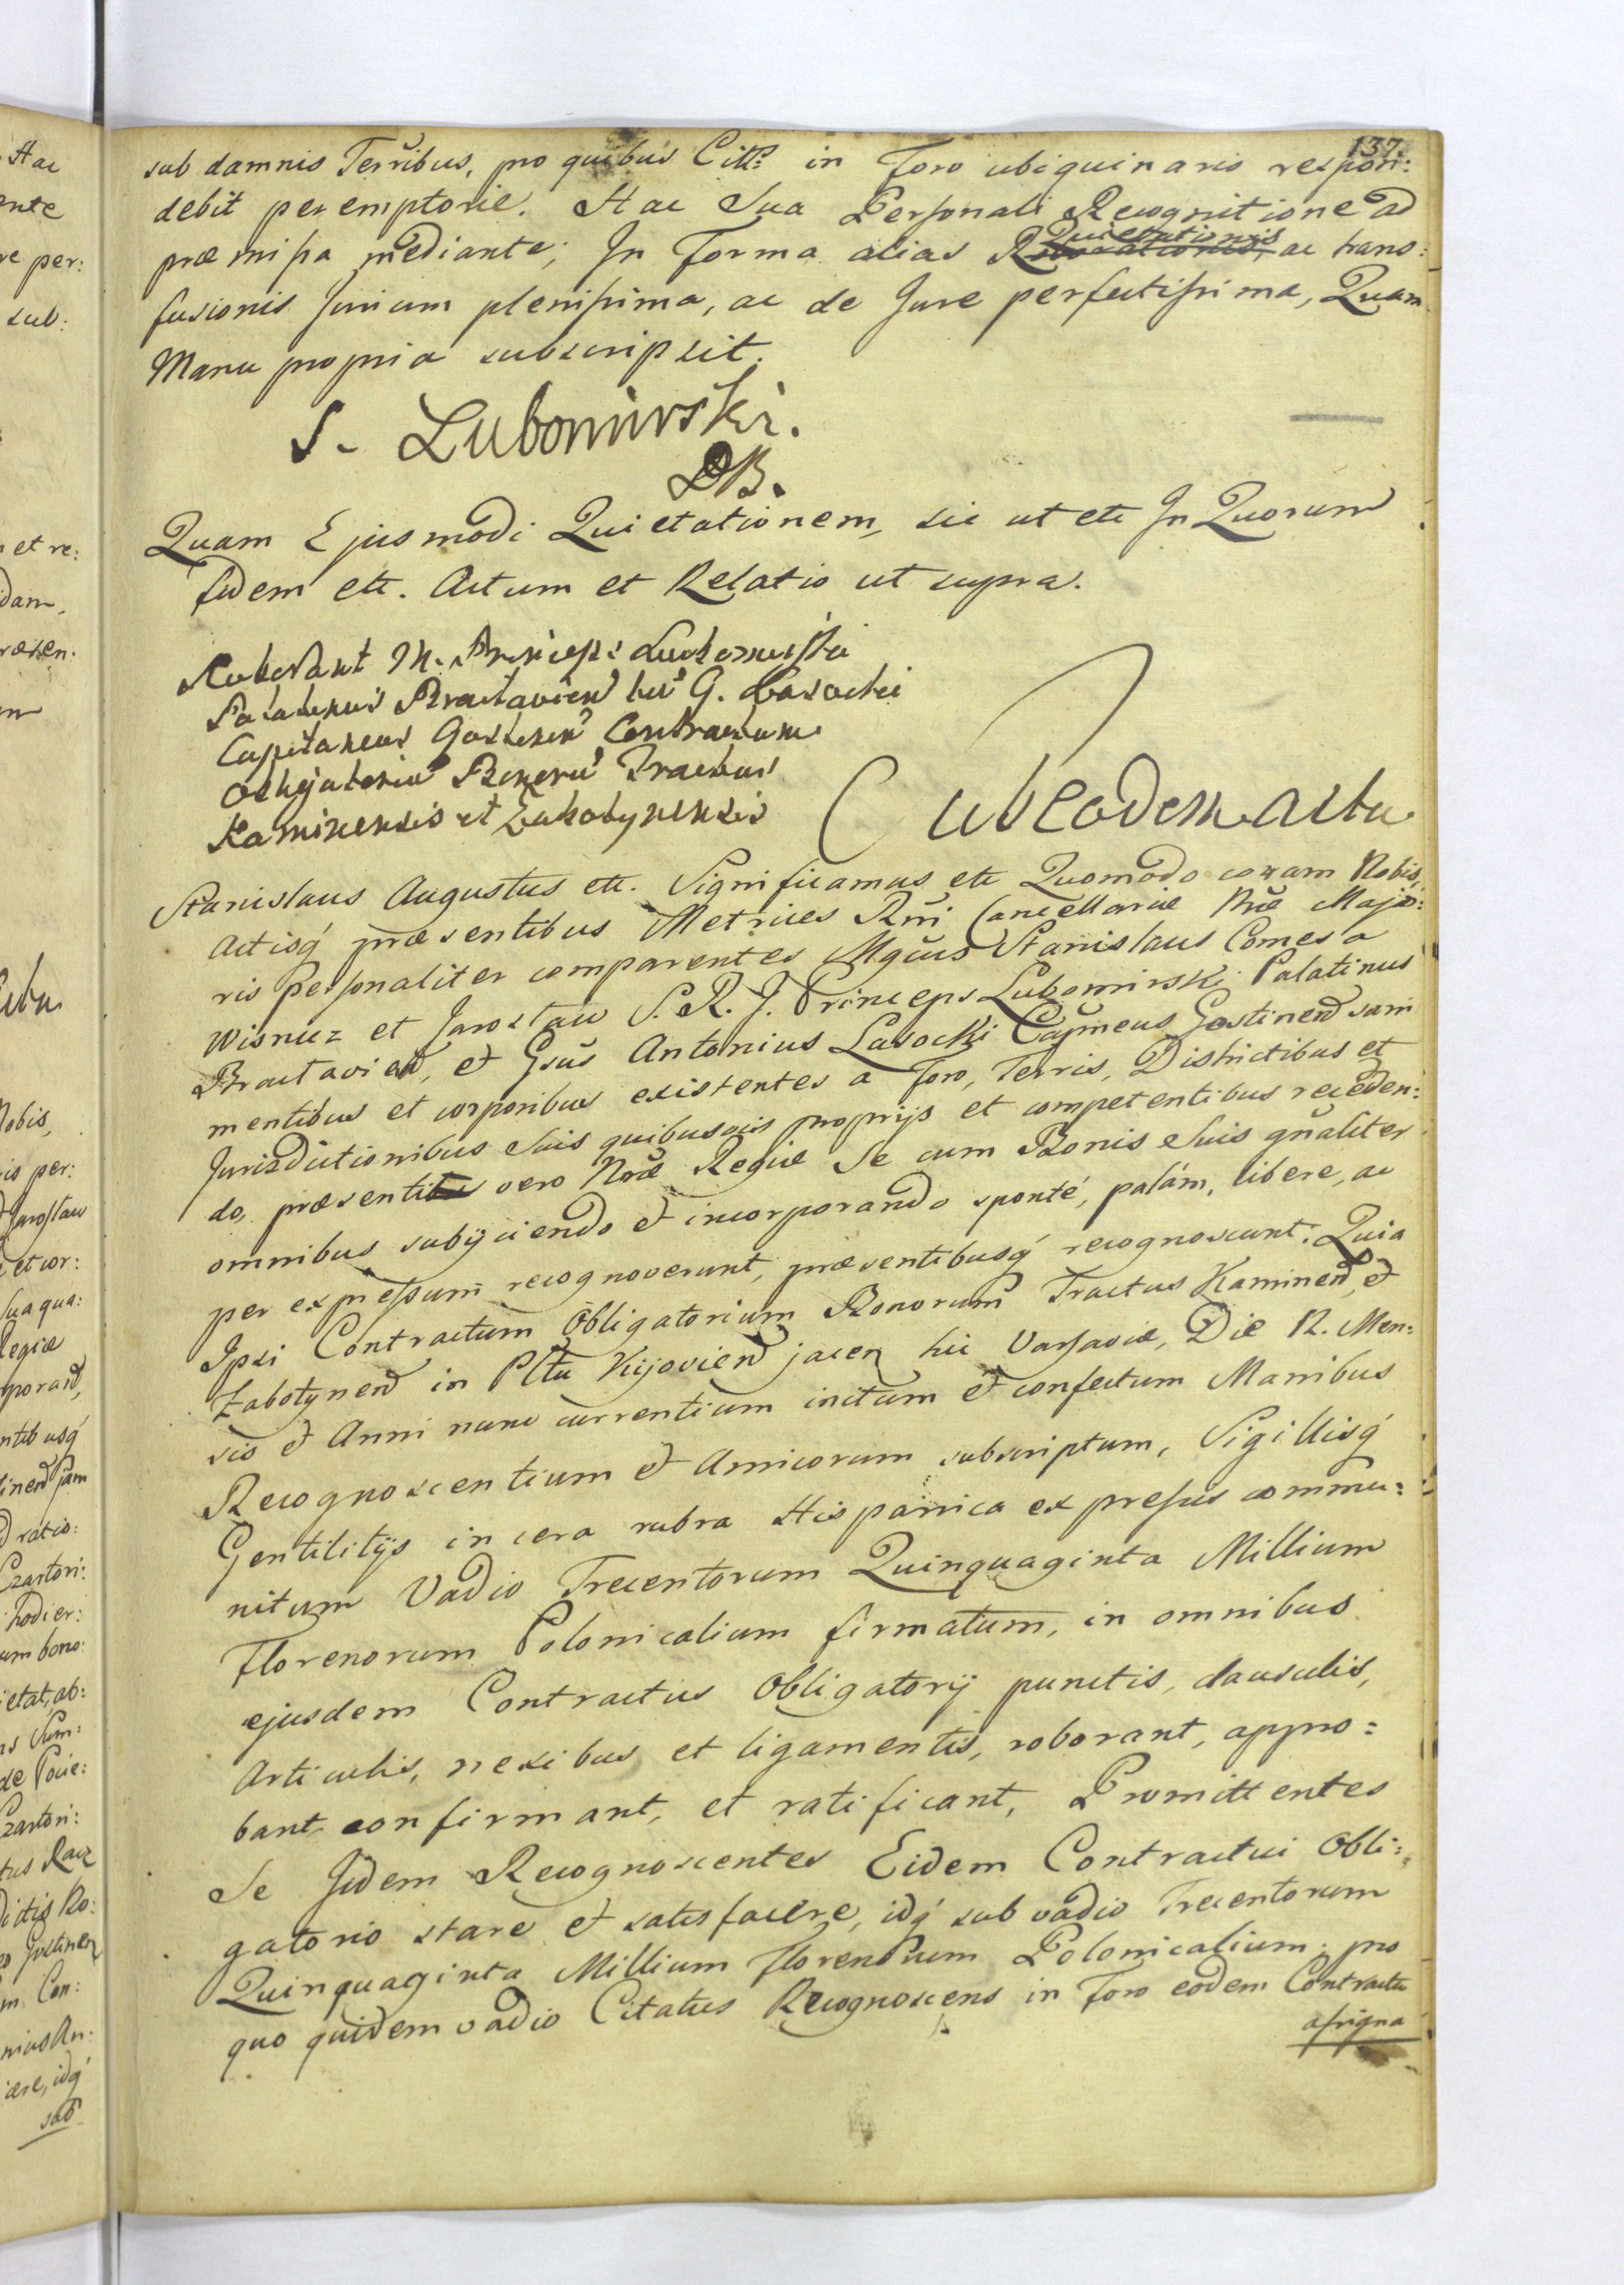 137.
sub damnis Terribus, pro quibus Citt: in Foro ubiquinario respon:
debit peremptorie. Hac Sua Personali Recognitione ad
præmissa mediante; In Forma alias Quietationis ac trans:
fusionis Jurium plenissima, ac de Jure perfectissima, Quam
Manu propria subscripsit.
S. Lubomirski.
Quam Ejusmodi Quietationem, sic ut etc In Quorum
fidem etc. Actum et Relatio ut supra.
Roborant M. Princeps Lubomirski
Palatinus Braclavien et G. Lasocki
Capitaneus Gostinen Contractum
Obligatorium Bonorum Tractus
Kaminensis et Żabotynensis
Sub eodem actu
Stanislaus Augustus etc. Significamus etc Quomodo coram Nobis,
Actisq præsentibus Metrices Rni Cancellariæ Nræ Majo:
ris personaliter comparentes Mgcus Stanislaus Comes a
Wisnicz et Jaroslaw S. R. J. Princeps Lubomirski Palatinus
Bractavien, et Gsus Antonius Lasocki Capneus Gostinen sani
mentibus et corporibus existentes a Foro, Terris, Districtibus et
Jurisdictionibus Suis quibusvis proprijs et competentibus receden:
do, præsenti vero Nræ Regiæ Se cum Bonis Suis gnaliter
omnibus subijciendo et incorporando sponte, palám, libere, ac
per expressum recognoverunt, præsentibusq recognoscunt: Quia
Ipsi Contractum Obligatorium Bonorum Tractus Kaminen, et
Żabotynen in Plttu Kijovien jacen hic Varsaviæ, Die 12. Men:
sis et Anni nunc currentium initum et confectum Manibus
Recognoscentium et Amicorum subscriptum, Sigillisq
Gentilitijs in cera rubra Hispanica expressis commu:
nitum Vadio Trecentorum Quinquaginta Millium
Florenorum Polonicalium firmatum, in omnibus
ejusdem Contractus Obligatorij punctis, clausulis,
Articulis, nexibus et ligamentis, roborant, appro:
bant, confirmant, et ratificant, Promittentes
Se Iidem Recognoscentes Eidem Contractui Obli:
gatorio stare et satisfacere, idq sub vadio Trecentorum
Quinquaginta Millium Florenorum Polonicalium: pro
quo quidem vadio Citatus Recognoscens in Foro eodem Contractu
assigna